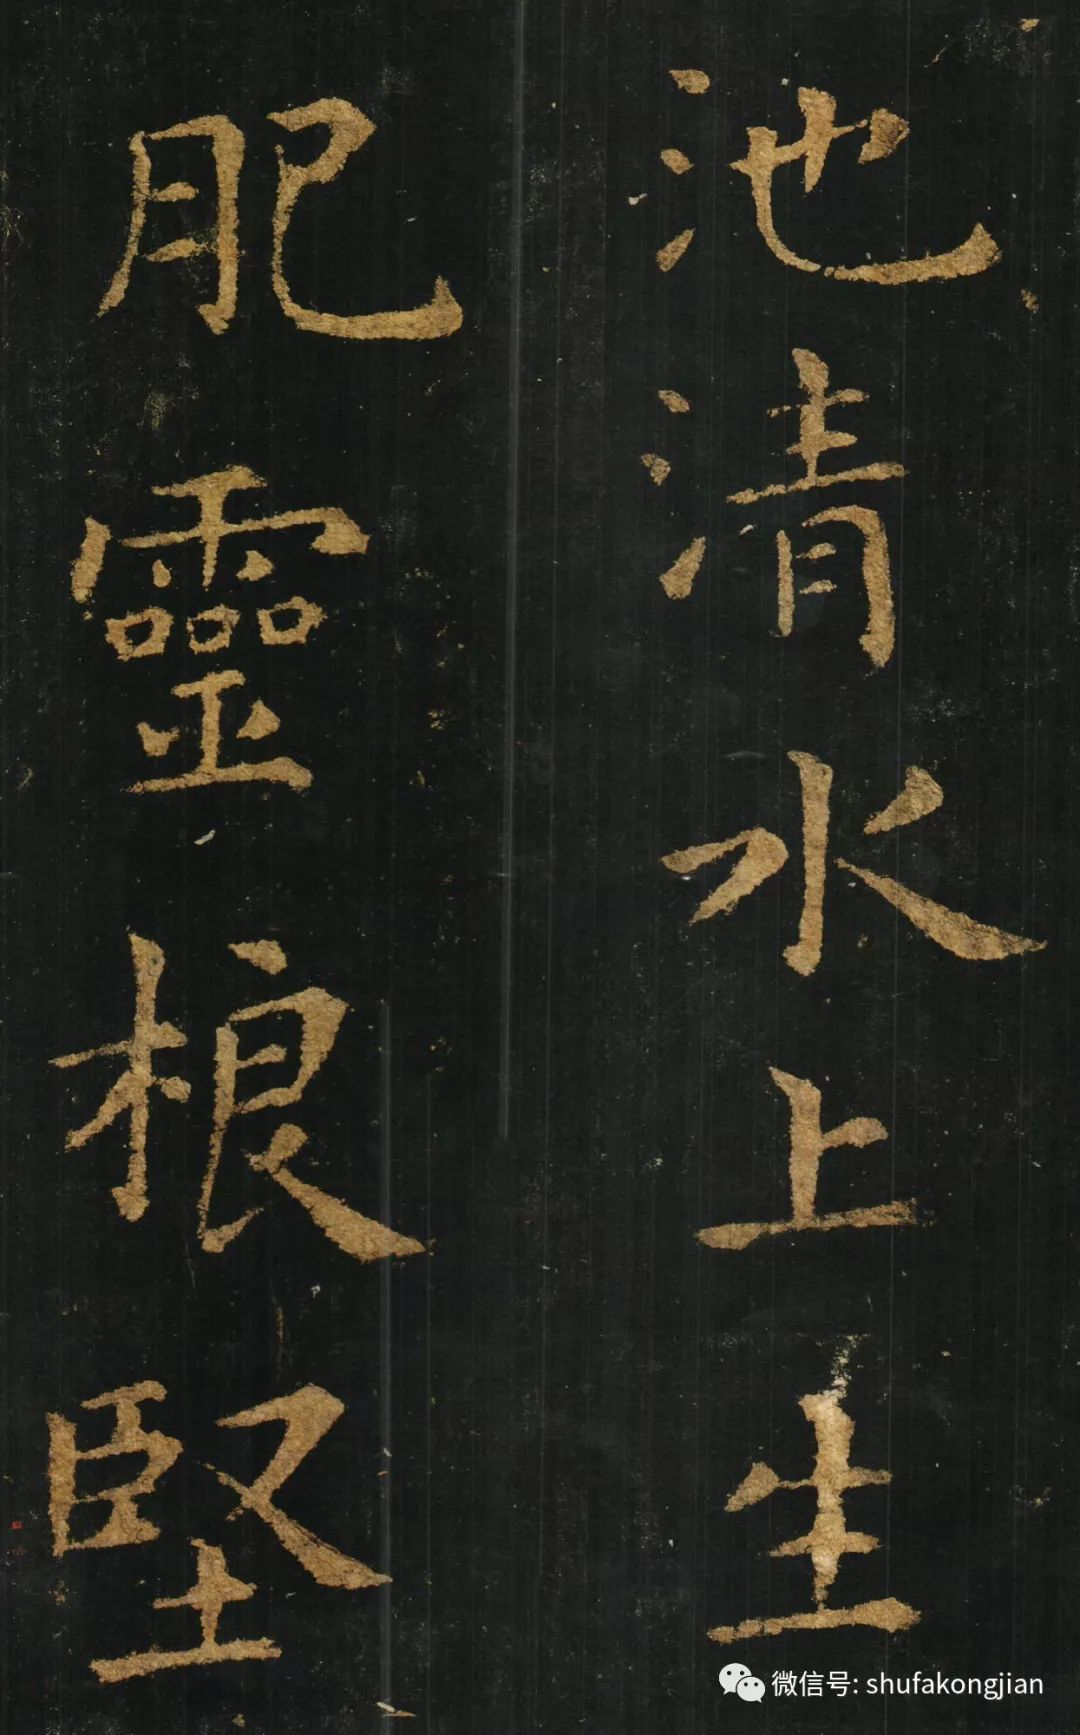 池清水上生
肥靈根堅
微信号: shufakongjian